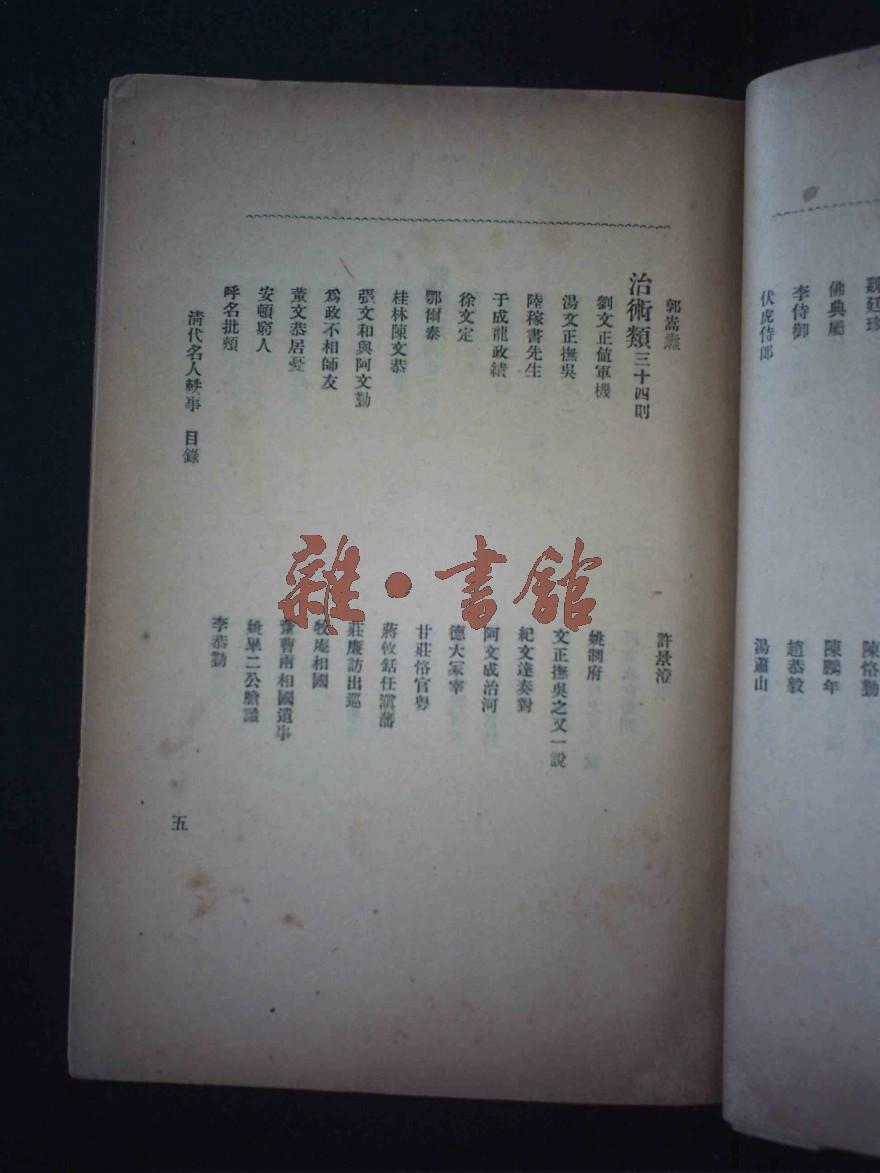 魏廷珍
陳恪勤
佛典屬
陳鵬年
李侍御
趙恭毅
伏虎侍郎
湯蕭山
郭嵩燾
許景澄
治術類三十四則
劉文正值軍機
姚制府
湯文正撫吳
文正撫吳之又一說
陸稼書先生
紀文達奏對
于成龍政績
阿文成治河
徐文定
德大冢宰
鄂爾泰
甘莊恪官粵
桂林陳文恭
蔣攸銛任滇藩
張文和與阿文勤
莊廉訪出巡
爲政不相師友
牧庵相國
董文恭居憂
董曹兩相國遺事
安頓窮人
姚畢二公膽識
呼名批頰
李恭勤
清代名人軼事 目錄
五
雜·書館